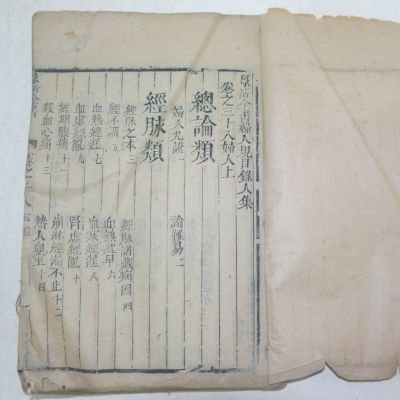 景岳全書婦人規目錄人集
卷之三十八婦人上
總論類
婦人九證一 論難易二
經脉類
經脉之本三 經脉諸臟病因四
經不調五 血熱經早六
血熱經遲七 血寒經遲八
血虛經亂九 腎虛經亂十
經期腹痛十一 崩淋經漏不止十二
殺血心痛十三 熱入血室十四